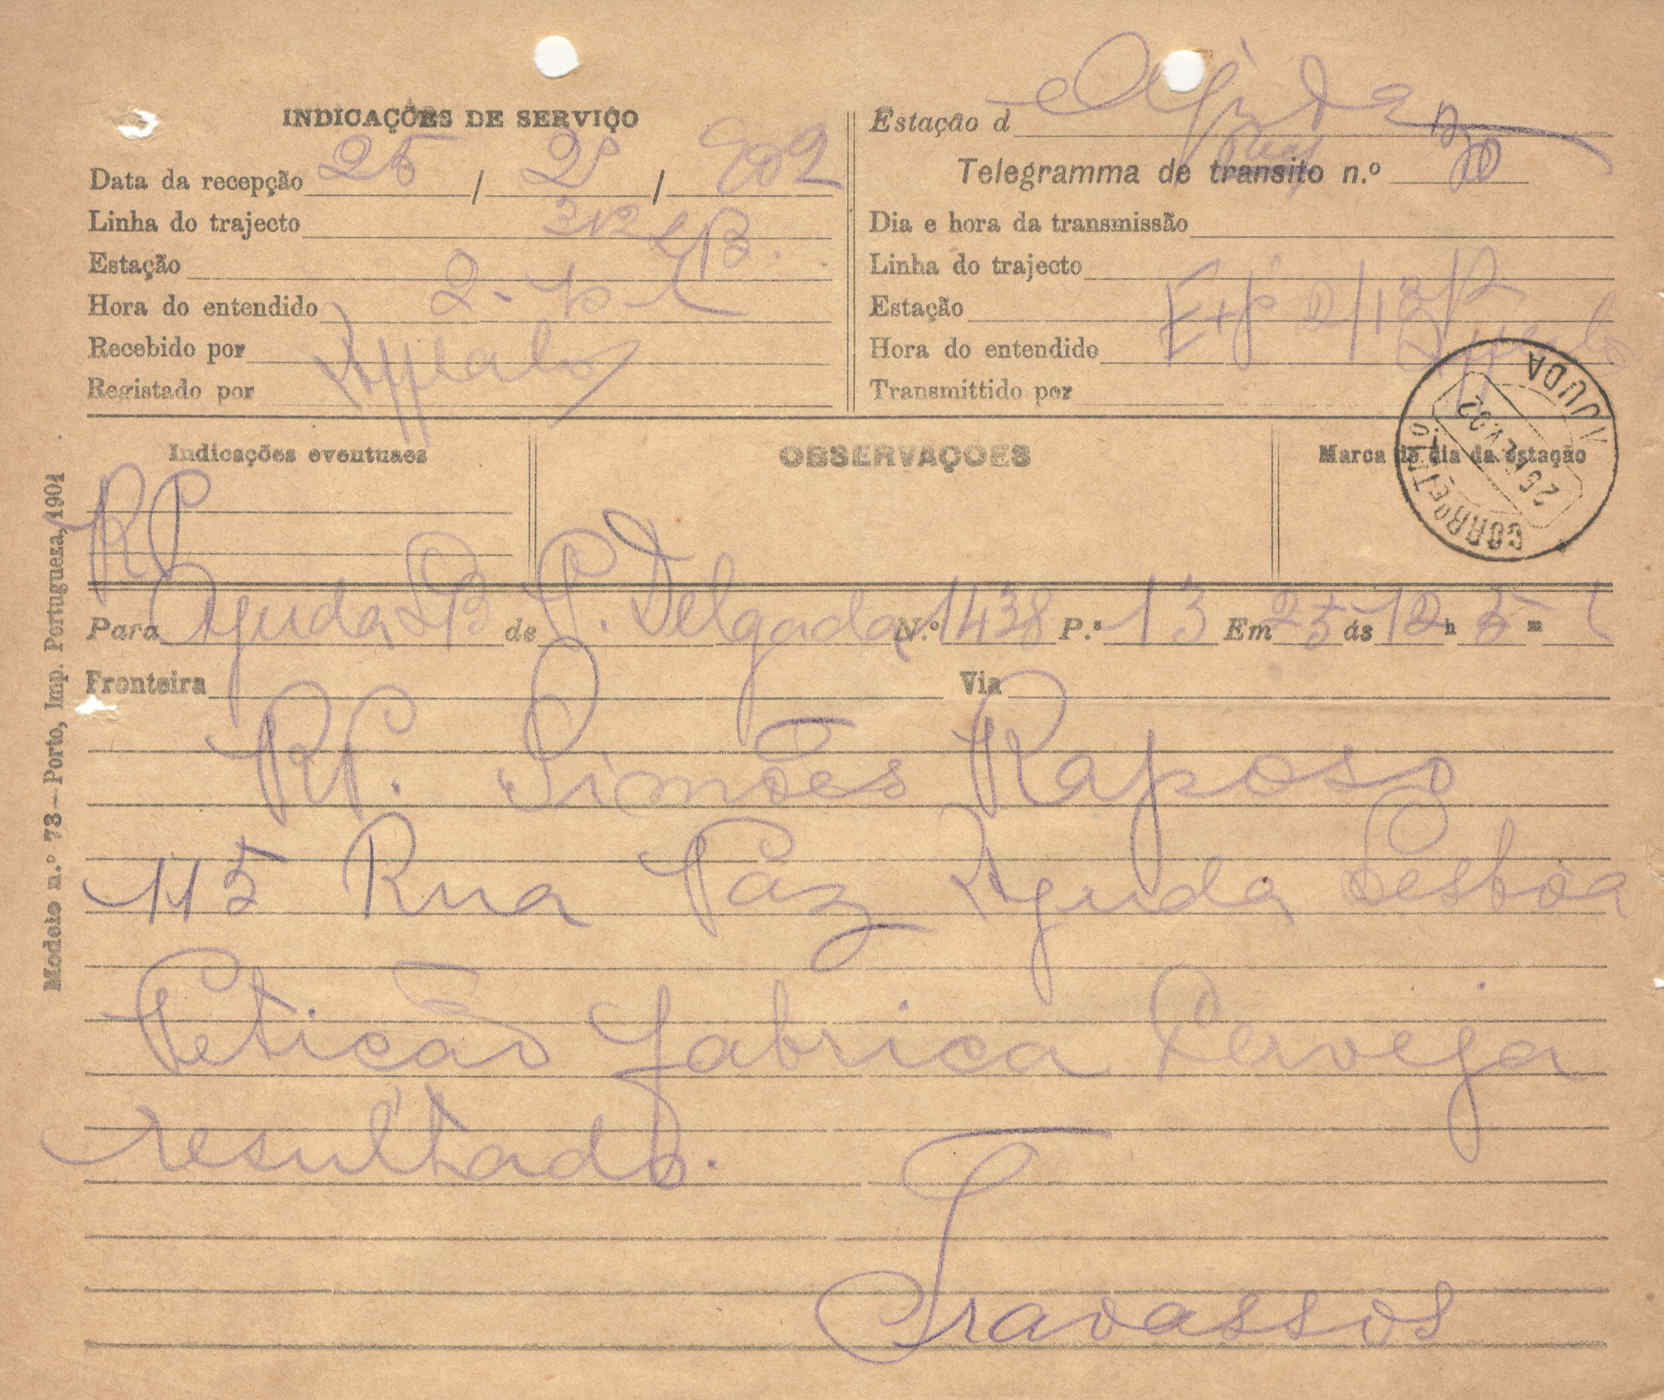 INDICAÇÕES DE SERVIÇO
Data da recepção 25 / 2 / 902
Linha do trajecto
Estação
Hora do entendido
Recebido por
Registado por
Estação d Ajuda
Telegramma de transito n.º
Dia e hora da transmissão
Linha do trajecto
Estação
Hora do entendido
Transmittido por
Indicações eventuaes
RP
OBSERVAÇÕES
Marca do dia da estação
CORRº E TELº AJUDA
25 FEV 02
Para Ajuda LB de P. Delgada N.º 1438 P.ª 13 Em 25 ás 12 h 5 m t
Fronteira Via
RP. Simões Raposo
115 Rua Paz Ajuda Lisboa
Petição fabrica Cerveja
resultado.
Travassos
Modelo n.º 73—Porto, Imp. Portugueza, 1901